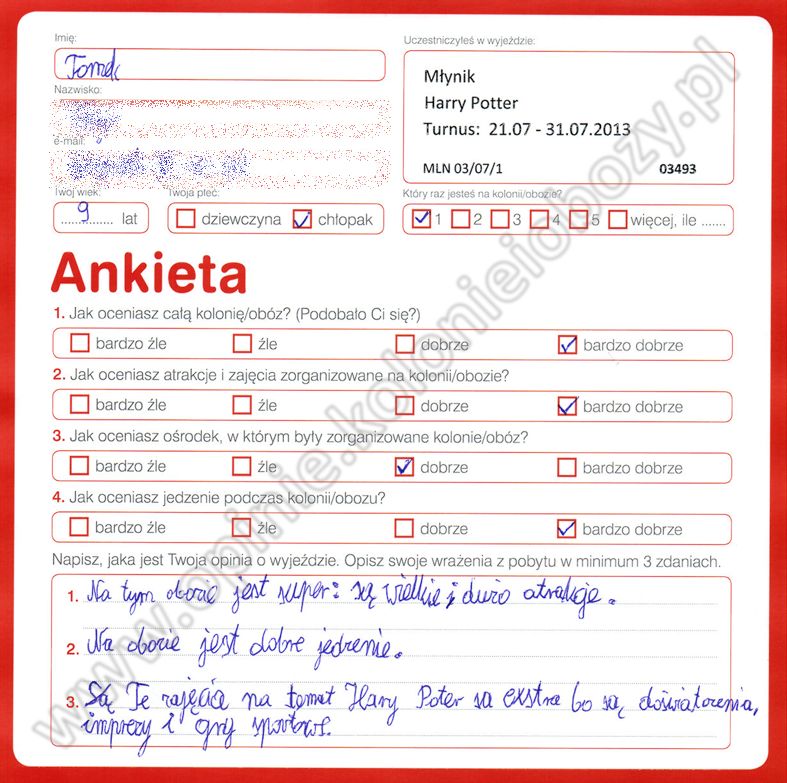 Imię:
Tomek
Nazwisko:
e-mail:
Twój wiek:
9 lat
Twoja płeć:
dziewczyna chłopak
Uczestniczyłeś w wyjeździe:
Młynik
Harry Potter
Turnus: 21.07 - 31.07.2013
MLN 03/07/1 03493
Który raz jesteś na kolonii/obozie?
1 2 3 4 5 więcej, ile .......
Ankieta
1. Jak oceniasz całą kolonię/obóz? (Podobało Ci się?)
bardzo źle źle dobrze bardzo dobrze
2. Jak oceniasz atrakcje i zajęcia zorganizowane na kolonii/obozie?
bardzo źle źle dobrze bardzo dobrze
3. Jak oceniasz ośrodek, w którym były zorganizowane kolonie/obóz?
bardzo źle źle dobrze bardzo dobrze
4. Jak oceniasz jedzenie podczas kolonii/obozu?
bardzo źle źle dobrze bardzo dobrze
Napisz, jaka jest Twoja opinia o wyjeździe. Opisz swoje wrażenia z pobytu w minimum 3 zdaniach.
1. Na tym obozie jest super: są wielkie i dużo atrakcje.
2. Na obozie jest dobre jedzenie.
3. Są Te zajęcia na temat Hary Poter sa exstra bo są doświatczenia,
imprezy i gry sportowe.
www.opinie.kolonieiobozy.pl